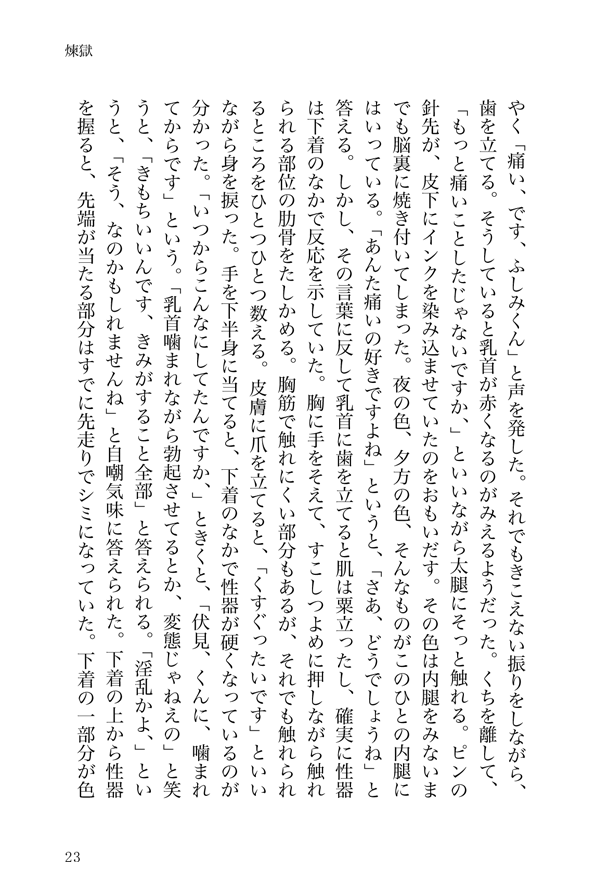 煉獄
やく「痛い、です、ふしみくん」と声を発した。それでもきこえない振りをしながら、
歯を立てる。そうしていると乳首が赤くなるのがみえるようだった。くちを離して、
「もっと痛いことしたじゃないですか、」といいながら太腿にそっと触れる。ピンの
針先が、皮下にインクを染み込ませていたのをおもいだす。その色は内腿をみないま
でも脳裏に焼き付いてしまった。夜の色、夕方の色、そんなものがこのひとの内腿に
はいっている。「あんた痛いの好きですよね」というと、「さあ、どうでしょうね」と
答える。しかし、その言葉に反して乳首に歯を立てると肌は粟立ったし、確実に性器
は下着のなかで反応を示していた。胸に手をそえて、すこしつよめに押しながら触れ
られる部位の肋骨をたしかめる。胸筋で触れにくい部分もあるが、それでも触れられ
るところをひとつひとつ数える。皮膚に爪を立てると、「くすぐったいです」といい
ながら身を捩った。手を下半身に当てると、下着のなかで性器が硬くなっているのが
分かった。「いつからこんなにしてたんですか、」ときくと、「伏見、くんに、噛まれ
てからです」という。「乳首噛まれながら勃起させてるとか、変態じゃねえの」と笑
うと、「きもちいいんです、きみがすること全部」と答えられる。「淫乱かよ、」とい
うと、「そう、なのかもしれませんね」と自嘲気味に答えられた。下着の上から性器
を握ると、先端が当たる部分はすでに先走りでシミになっていた。下着の一部分が色
23